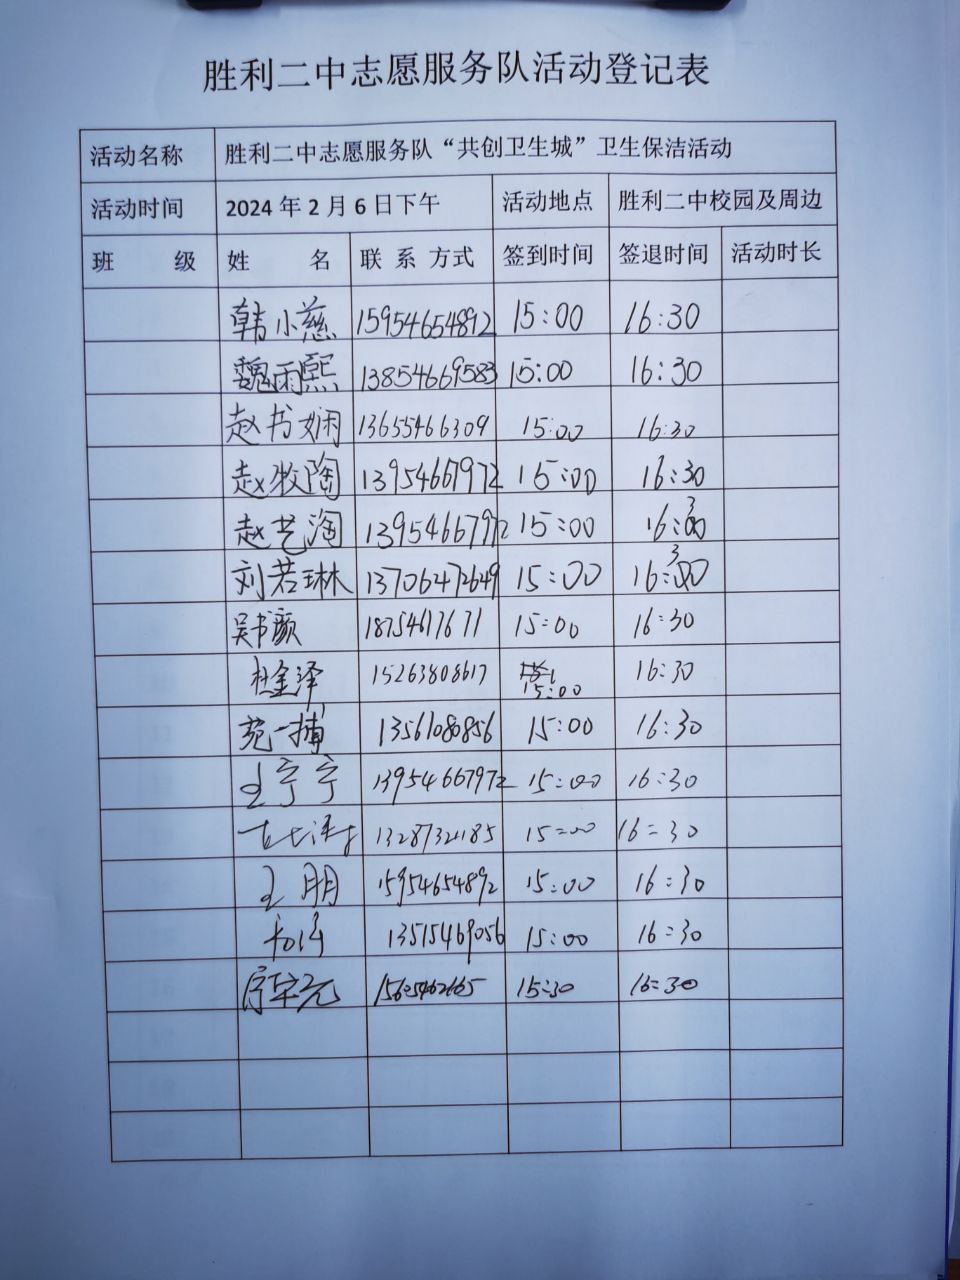 胜利二中志愿服务队活动登记表
活动名称 胜利二中志愿服务队“共创卫生城”卫生保洁活动
活动时间 2024年2月6日下午 活动地点 胜利二中校园及周边
班 级 姓 名 联 系 方式 签到时间 签退时间 活动时长
韩小慈 15954654892 15:00 16:30
魏雨熙 13854669583 15:00 16:30
赵书娴 13655466309 15:00 16:30
赵牧陶 13954667972 15:00 16:30
赵艺淘 13954667972 15:00 16:30
刘若琳 13706472649 15:00 16:30
吴书颜 18754617671 15:00 16:30
杜金泽 15263808617 15:00 16:30
苑一 13561080856 15:00 16:30
王宁宁 13954667972 15:00 16:30
15:00 16:30
王朋 15954654892 15:00 16:30
13515469056 15:00 16:30
15:30 16:30